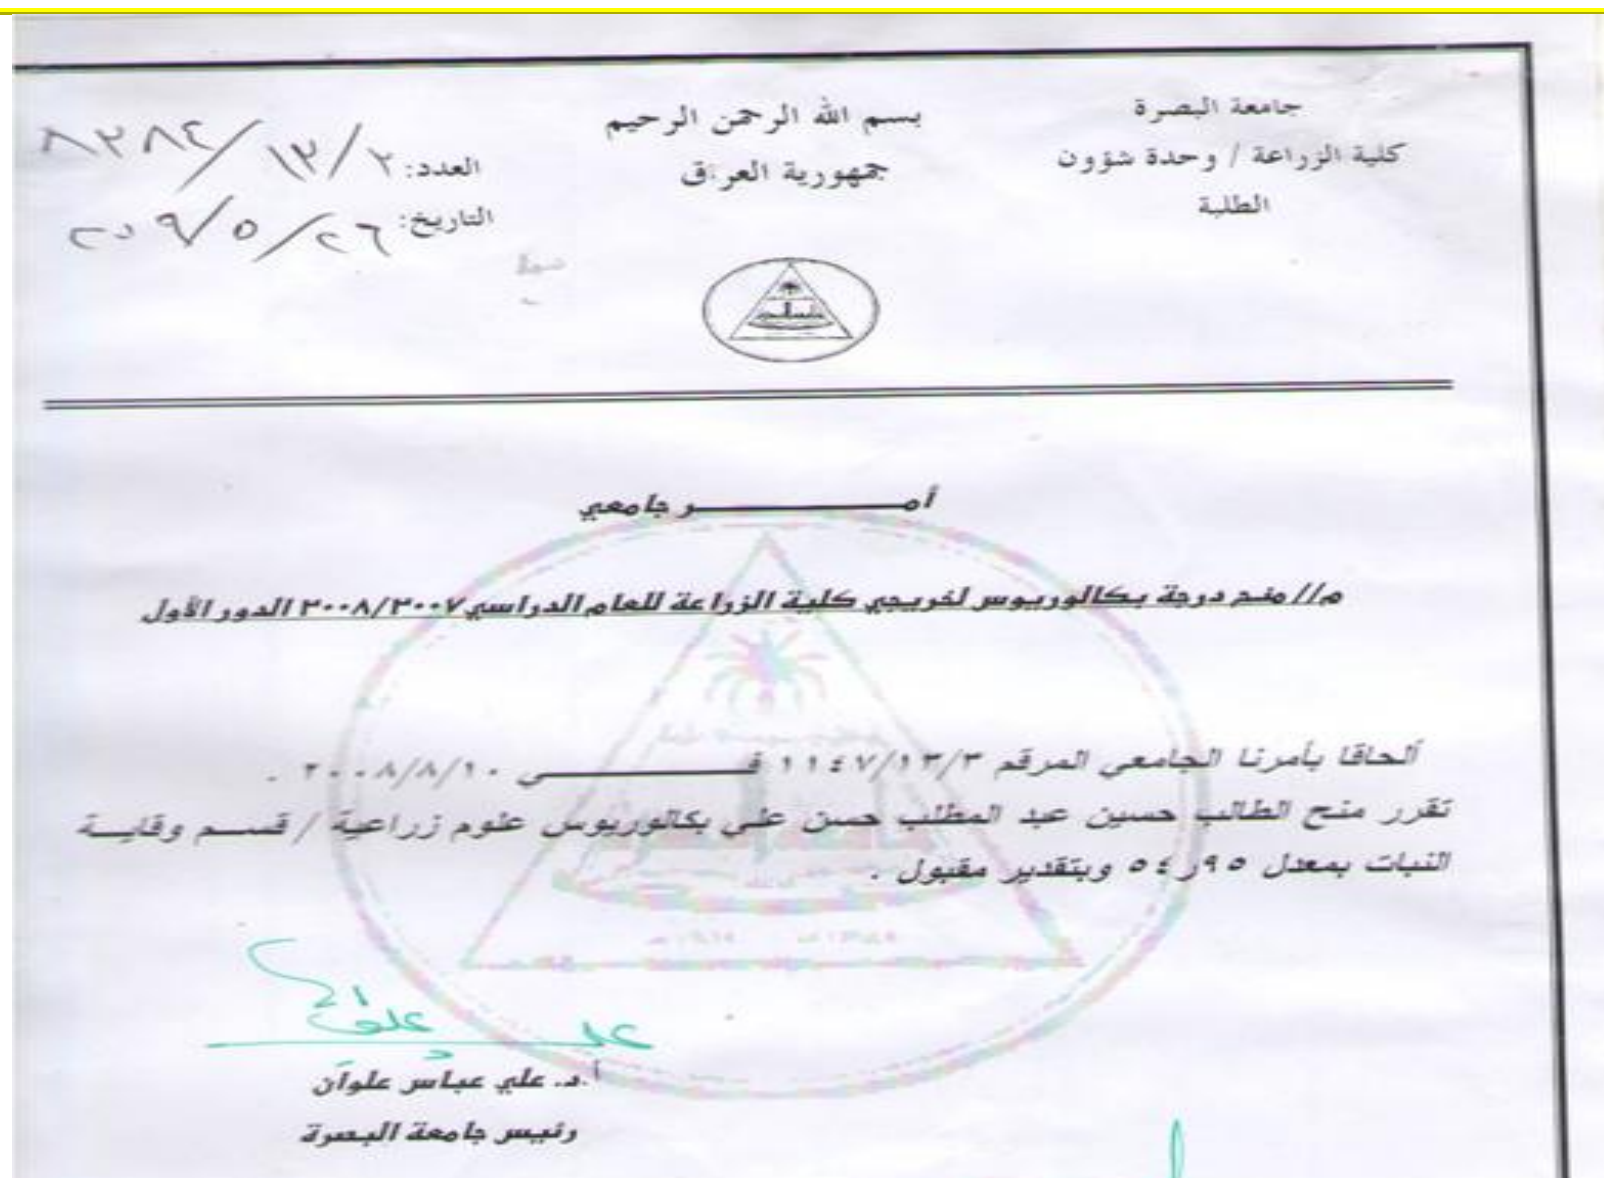 جامعة البصرة
كلية الزراعة / وحدة شؤون
الطلبة
بسم الله الرحمن الرحيم
جمهورية العراق
العدد: ٢/١٣/
التاريخ: ٢٦/٥/٢٠٠٩
أمـــــــــــر جامعي
م// منح درجة بكالوريوس لخريجي كلية الزراعة للعام الدراسي ٢٠٠٨/٢٠٠٧ الدور الأول
ألحاقا بأمرنا الجامعي المرقم ١١٤٧/١٣/٣ فـــــــــي ٢٠٠٨/٨/١٠ .
تقرر منح الطالب حسين عبد المطلب حسن علي بكالوريوس علوم زراعية / قســم وقايــة
النبات بمعدل ٩٥ر٥٤ وبتقدير مقبول .
أ.د. علي عباس علوان
رئيس جامعة البصرة